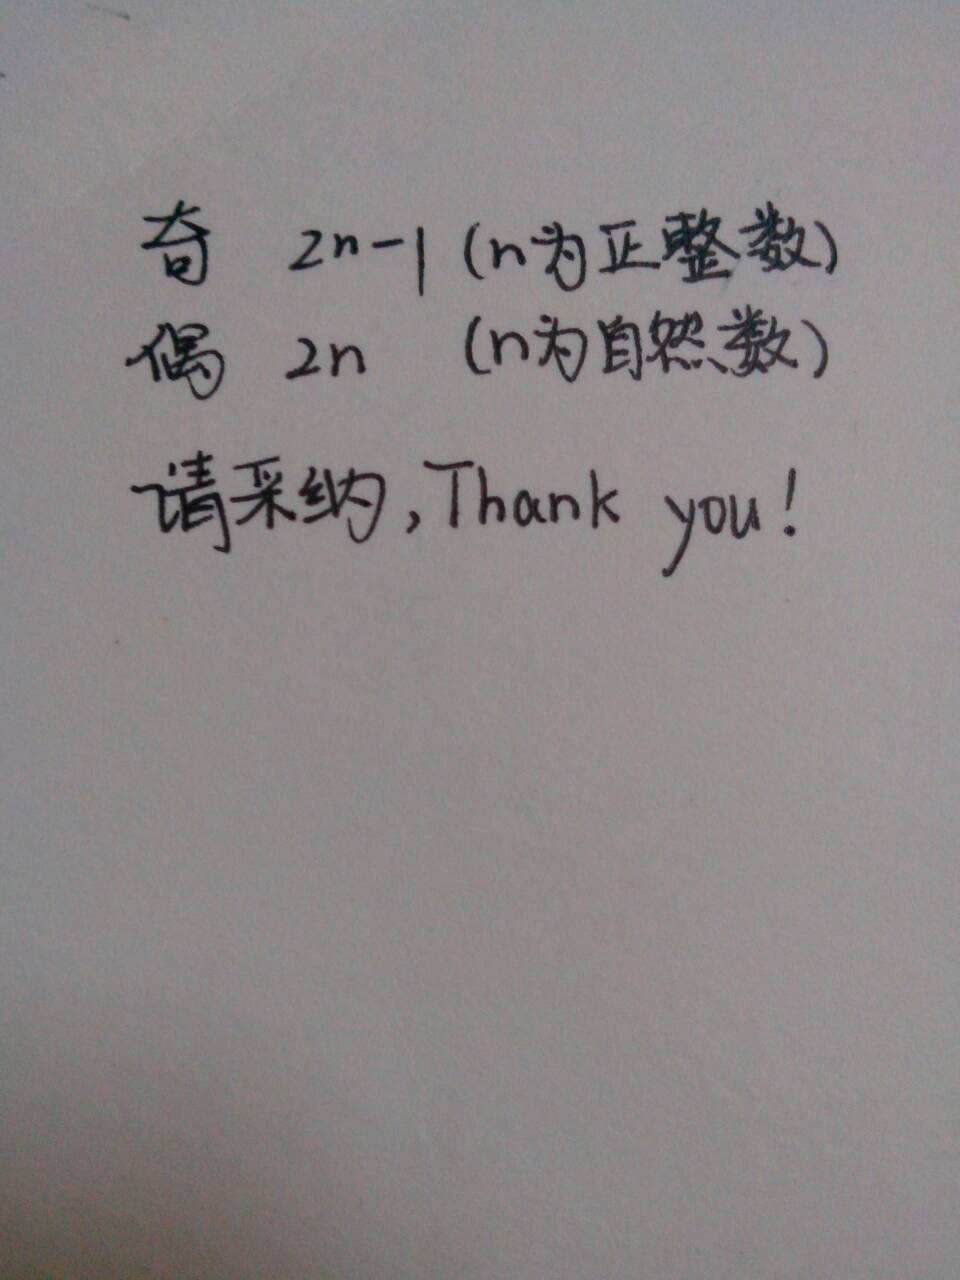 奇 2n-1 (n为正整数)
偶 2n (n为自然数)
请采纳,Thank you!